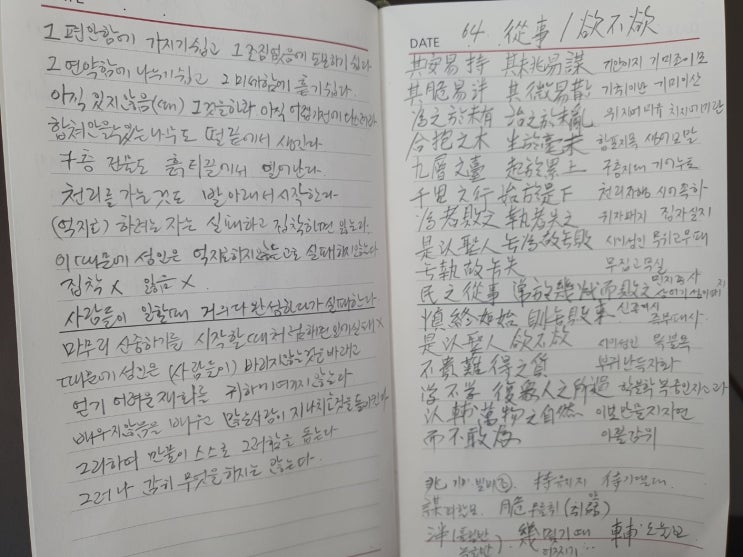 그 편안함에 가지기 쉽고 그 조짐없음에 도모하기 쉽다
그 연약함에 나누기 쉽고 그 미세함에 흩기 쉽다.
아직 있지않음(때) 그것을하라 아직 어지럽기전에 다스려라
합쳐안을수있는나무도 털끝에서 생긴다
구층 건물도 흙티끌에서 일어난다.
천리를 가는것도 발아래서 시작한다
(억지로) 하려는 자는 실패하고 집착하면 잃는다.
이 때문에 성인은 억지로하지않는고로 실패하지않는다
집착 X 잃음 X
사람들이 일할때 거의다 완성하다가 실패한다.
마무리 신중하기를 시작할때처럼하면 일기실패X
때문에 성인은 (사람들이) 바라지않는것을 바라고
얻기 어려운재화를 귀하게여기지 않는다
배우지않음을 배우고 많은사람이 지나친것을 돌이킨다
그리하여 만물이 스스로 그러함을 돕는다
그러나 감히 무엇을하지는 않는다.
DATE 64. 從事 / 欲不欲
其安易持 其未兆易謀 기안이지 기미조이모
其脆易泮 其微易散 기취이반 기미이산
爲之於未有 治之於未亂 위지어미유 치지어미란
合抱之木 生於毫末 합포지목 생어호말
九層之臺 起於累土 구층지대 기어누토
千里之行 始於足下 천리지행 시어족하
爲者敗之 執者失之 위자패지 집자실지
是以聖人無爲故無敗 시이성인 무위고무패
無執故無失 무집고무실
民之從事 常於幾成而敗之 민지종사 상어기성이패지
愼終如始 則無敗事 신종여시 즉무패사.
是以聖人 欲不欲 시이성인 욕불욕
不貴難得之貨 부귀난득지화
學不學 復衆人之所過 학불학 복중인지소과
以輔萬物之自然 이보만물지자연
而不敢爲 이불감위
兆 持 유지지 待 기다릴대.
謀 꾀할모. 脆 무를취 (취약)
泮 幾 몇기 때 輔 도울보